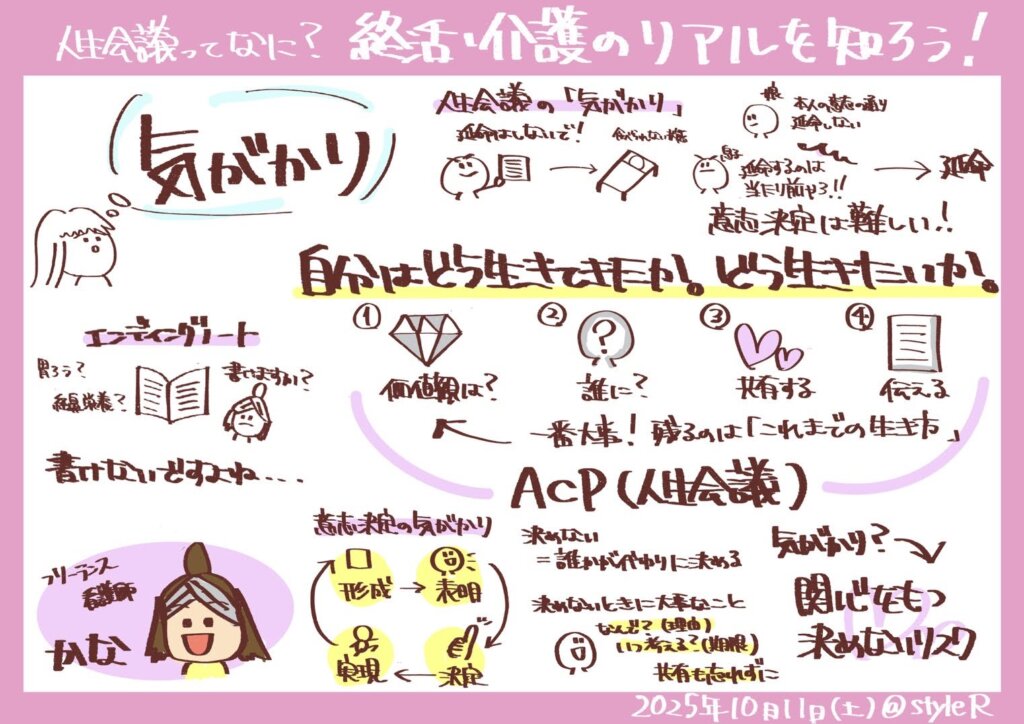 人生会議ってなに? 終活・介護のリアルを知ろう!
気がかり
人生会議の「気がかり」
延命はしないで!
食べられない状態
娘
本人の意志の通り
延命しない
息子
延命するのは
当たり前やろ!!
延命
意志決定は難しい!
自分はどう生きてきたか。どう生きたいか。
① 価値観は?
② 誰に?
③ 共有する
④ 伝える
一番大事! 残るのは「これまでの生き方」
ACP(人生会議)
エンディングノート
胃ろう?
経鼻栄養?
書けますか?
書けないですよね...
フリーランス
看護師
かな
意志決定の気がかり
形成
表明
決定
実現
決めない
=誰かが代わりに決める
決めないときに大事なこと
なんで?(理由)
いつ考える?(期限)
共有も忘れずに
気がかり?
関心をもつ
決めないリスク
2025年10月11日(土)@styleR